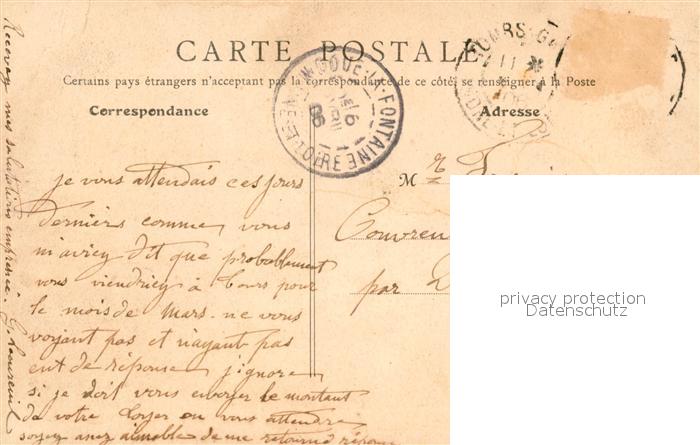 CARTE POSTALE
Certains pays étrangers n'acceptant pas la correspondance de ce côté, se renseigner à la Poste
Correspondance
Adresse
DOUÉ-LA-FONTAINE
TOURS-GA
M r
Couvreu
par D
je vous attendais ces jours
derniers comme vous
m'aviez dit que probablement
vous viendriez à Tours pour
le mois de Mars. ne vous
voyant pas et n'ayant pas
eut de réponse j'ignore
si je doit vous envoyer le montant
de votre Loyer ou vous attendre
soyez assez aimable de me retourné réponse
Recevez mes salutations empressé.
privacy protection
Datenschutz